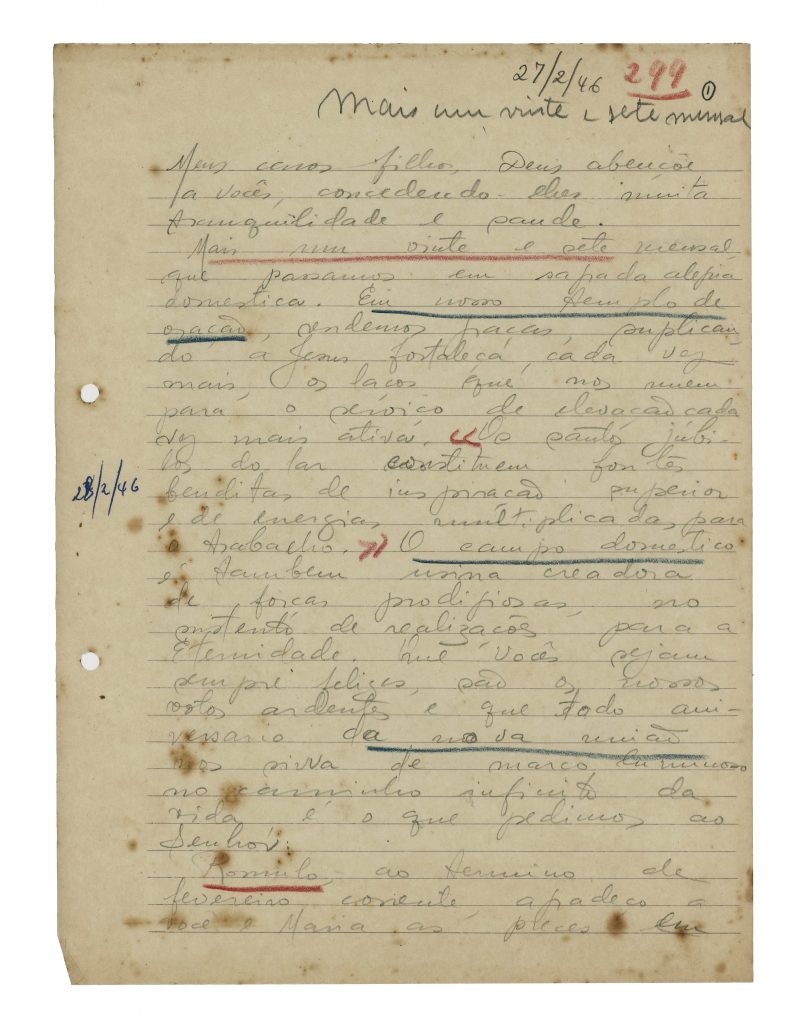 27/2/46 299 1
Mais um vinte e sete mensal
Meus caros filhos, Deus abençôe
a vocês, concedendo-lhes muita
tranquilidade e saude.
Mais um vinte e sete mensal
que passamos em sagrada alegria
domestica. Em nosso templo de
oração, rendemos graças, suplican-
do a Jesus fortaleça, cada vez
mais, os laços que nos unem
para o serviço de elevação cada
vez mais ativa. «Os santos júbi-
los do lar constituem fontes
28/2/46
benditas de inspiração superior
e de energias multiplicadas para
o trabalho.» O campo domestico
é tambem usina creadora
de forças prodigiosas, no
sustento de realizações para a
Eternidade. Que vocês sejam
sempre felizes, são os nossos
votos ardentes e que todo ani-
versario da nova união
nos sirva de marco luminoso
no caminho infinito da
vida, é o que pedimos ao
Senhor.
Romulo, ao termino de
fevereiro corrente agradeço a
você e Maria as preces em